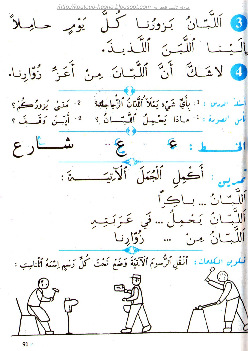 3 اَللَّبَّانُ يَزورُنا كُلَّ يَوْمٍ حامِلاً
إِلَيْنا اللَّبَنَ اللَّذيذَ.
4 لا شَكَّ أَنَّ اللَّبَّانَ مِنْ أَعَزِّ زُوّارِنا.
1- بِأَيِّ شَيْءٍ يَمْلَأُ اللَّبَّانُ الزُّجاجَةَ؟ 2- مَتى يَزورُكُمْ؟
1- ماذا يَحْمِلُ اللَّبَّانُ؟ 2- أَيْنَ وَقَفَ؟
الخَط: ع ع شارع
تمرين: أَكْمِلِ الْجُمَلَ الْآتِيَةَ:
اللَّبَّانُ ... باكِرًا
اللَّبَّانُ يَحْمِلُ ... في عَرَبَتِهِ
اللَّبَّانُ مِنْ ... زُوّارِنا
تكوين الكلمات: اُنْقُلِ الرُّسومَ الْآتِيَةَ وَضَعْ تَحْتَ كُلِّ رَسْمٍ اسْمَهُ الْمُناسِبَ:
91